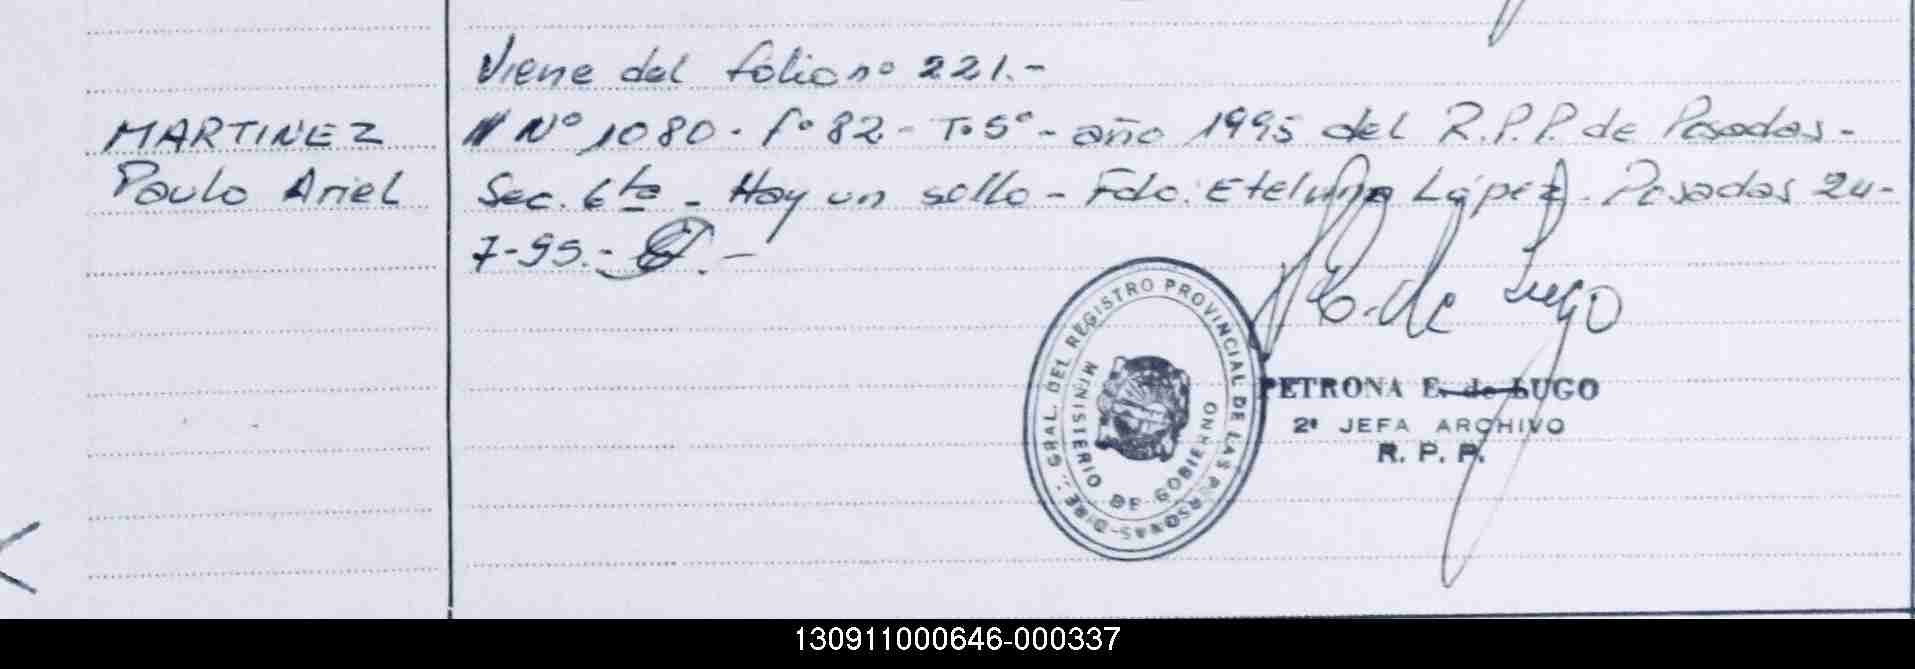 Viene del folio nº 221.-
MARTINEZ
Paulo Ariel
// Nº 1080. fº 82.- Tº 5º.- año 1995 del R.P.P. de Posadas.-
Sec. 6ta - Hay un sello - Fdo: Etelvina López. Posadas 24-
7-95.-
P. E. de Lugo
DIRE. GRAL. DEL REGISTRO PROVINCIAL DE LAS PERSONAS-
MINISTERIO DE GOBIERNO
PETRONA E. de LUGO
2ª JEFA ARCHIVO
R. P. P.
130911000646-000337